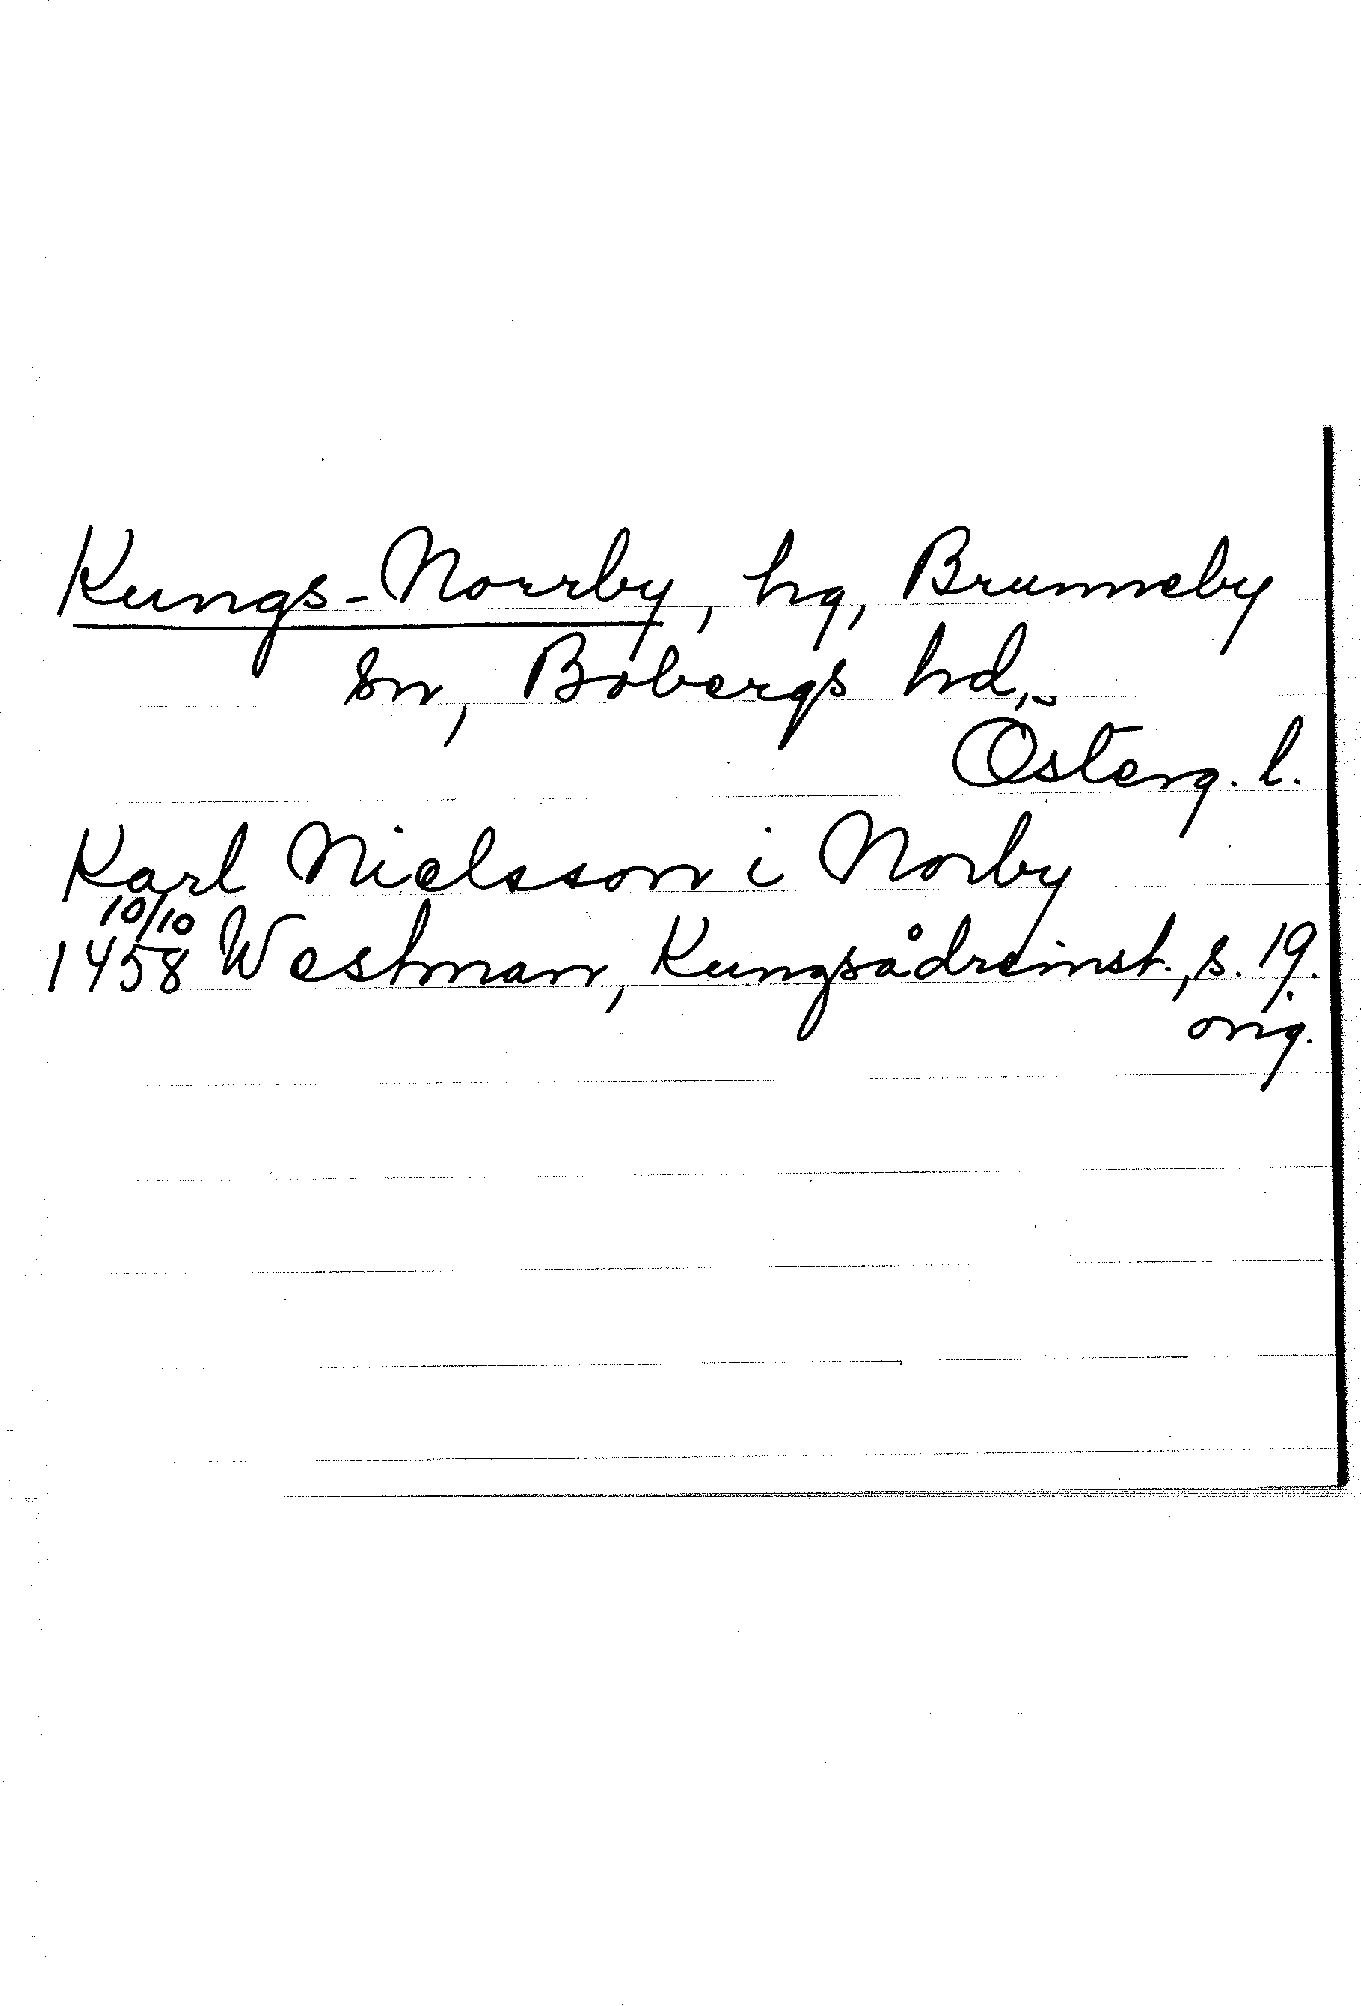 Kungs-Norrby, hg, Brunneby
sn, Bobergs hd,
Österg. l.
Karl Nielsson i Norby
10/10
1458 Westman, Kungsådreinst., s. 19.
orig.